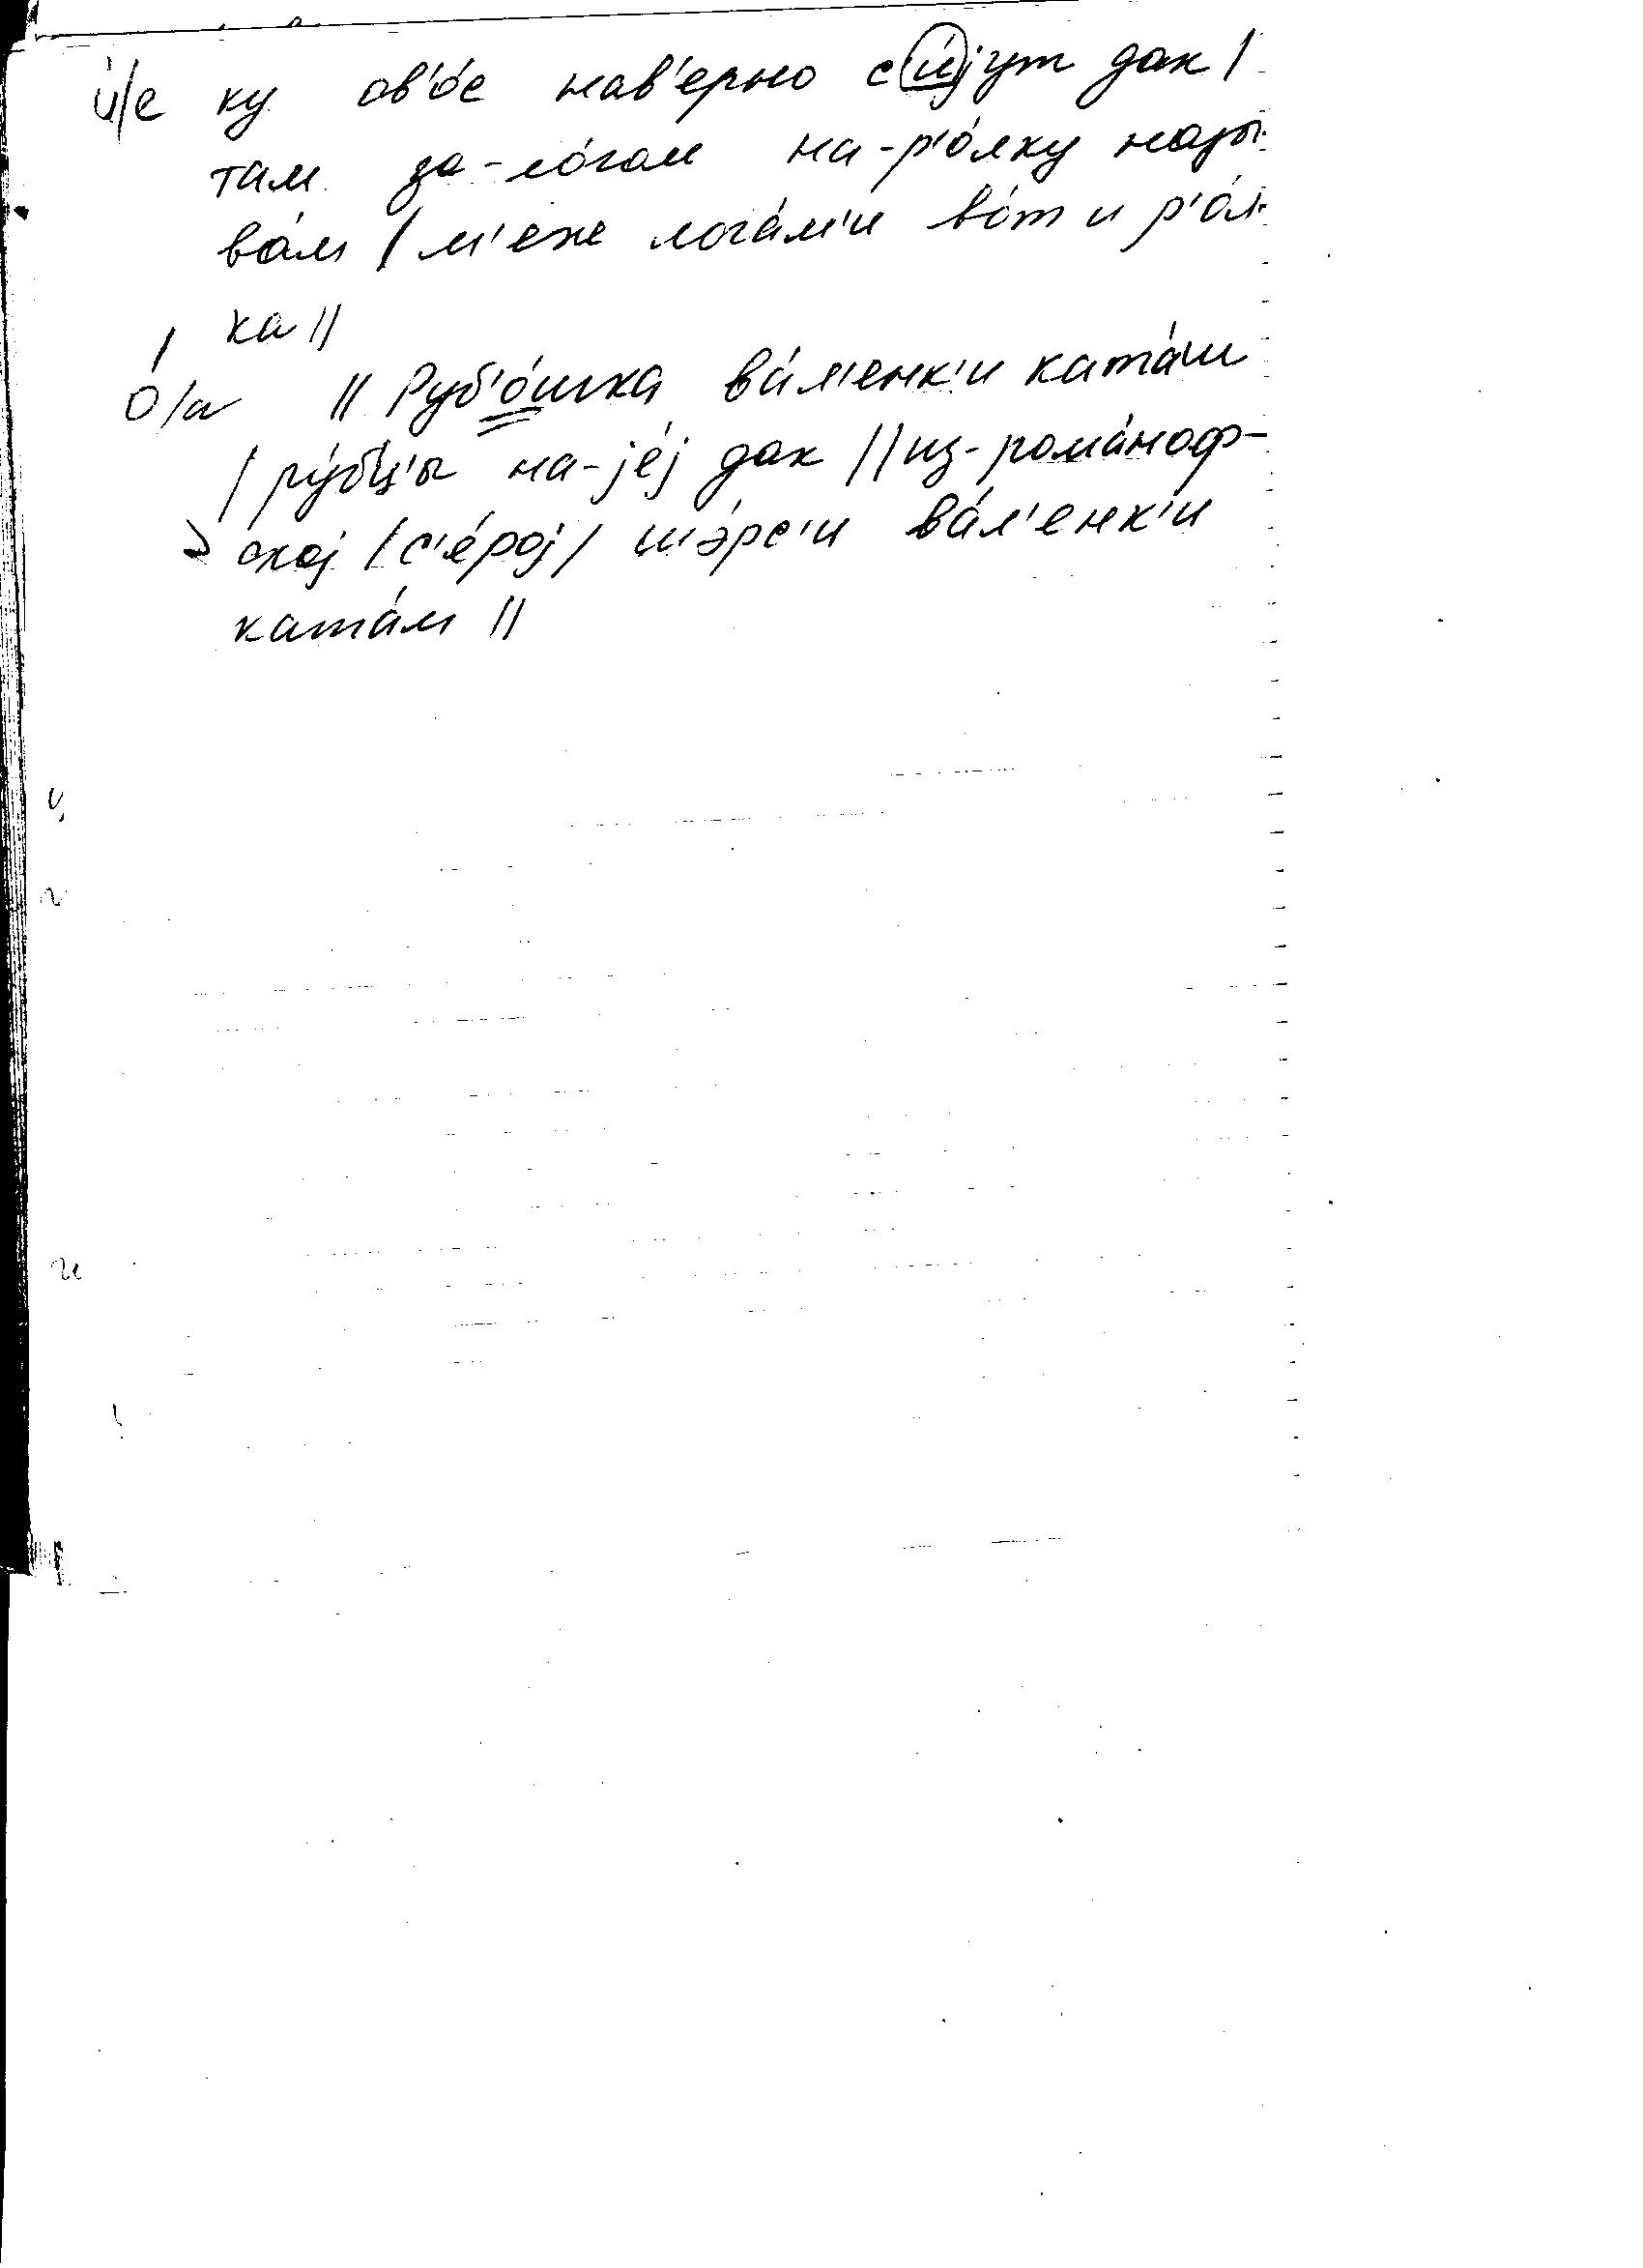 и́/е ку ов'о́с нав'ерно с'и́jут дак /
там за-ло́гом на-р'о́лку назы-
ва́м / м'еже лога́м'и во́т и р'о́л-
ка //
о́/а // Руб'о́шка ва́л'енк'и ката́ш
/ рубц'ы на-jе́j дак // из-рома́ноф-
скоj / с'е́роj / шэ́рс'и ва́л'енк'и
ката́м //